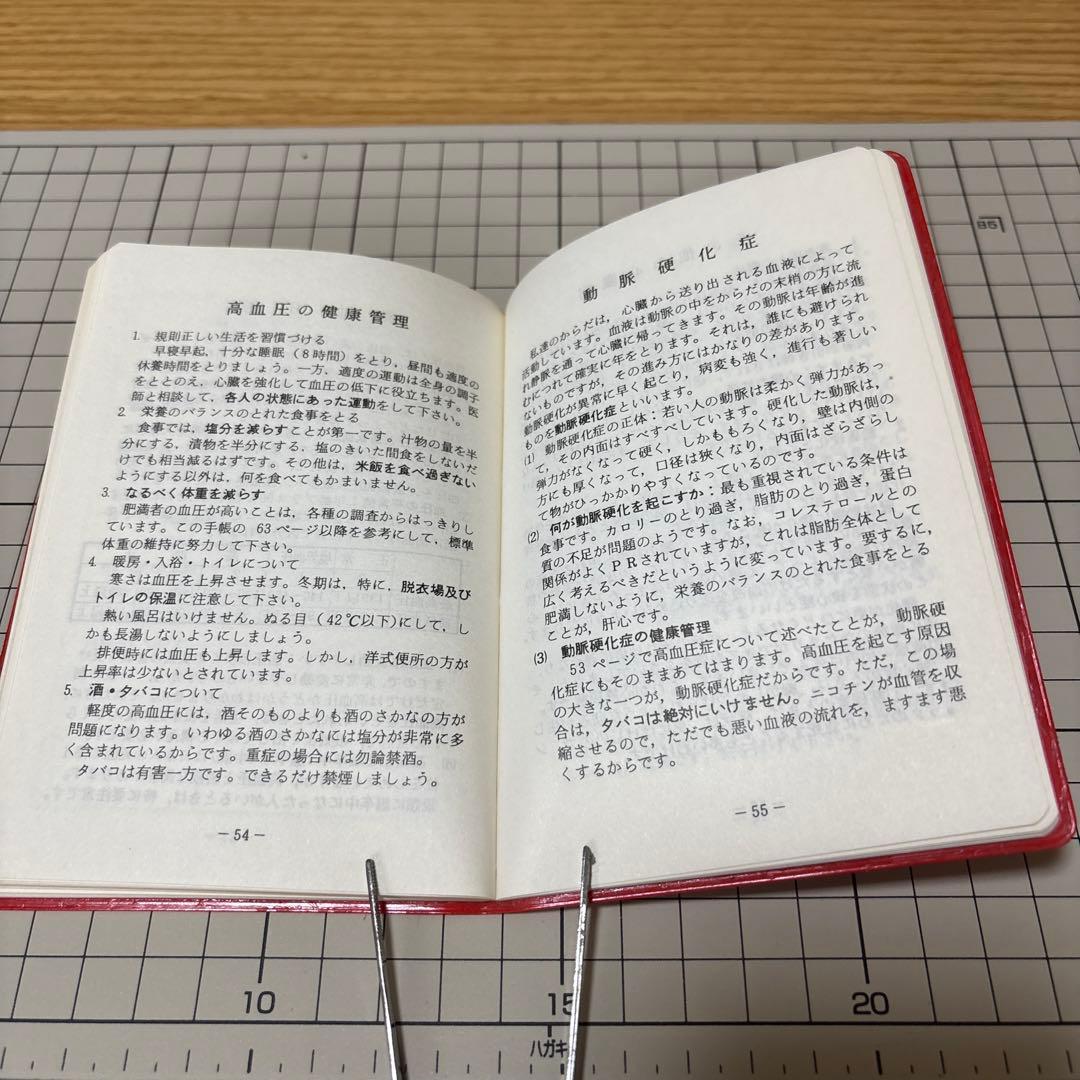 高血圧の健康管理
1. 規則正しい生活を習慣づける
早寝早起、十分な睡眠（8時間）をとり、昼間も適度の
休養時間をとりましょう。一方、適度の運動は全身の調子
をととのえ、心臓を強化して血圧の低下に役立ちます。医
師と相談して、各人の状態にあった運動をして下さい。
2. 栄養のバランスのとれた食事をとる
食事では、塩分を減らすことが第一です。汁物の量を半
分にする、漬物を半分にする、塩のきいた間食をしないだ
けでも相当減るはずです。その他は、米飯を食べ過ぎない
ようにする以外は、何を食べてもかまいません。
3. なるべく体重を減らす
肥満者の血圧が高いことは、各種の調査からはっきりし
ています。この手帳の 63 ページ以降を参考にして、標準
体重の維持に努力して下さい。
4. 暖房・入浴・トイレについて
寒さは血圧を上昇させます。冬期は、特に、脱衣場及び
トイレの保温に注意して下さい。
熱い風呂はいけません。ぬる目（42℃以下）にして、し
かも長湯しないようにしましょう。
排便時には血圧も上昇します。しかし、洋式便所の方が
上昇率は少ないとされています。
5. 酒・タバコについて
軽度の高血圧には、酒そのものよりも酒のさかなの方が
問題になります。いわゆる酒のさかなには塩分が非常に多
く含まれているからです。重症の場合には勿論禁酒。
タバコは有害一方です。できるだけ禁煙しましょう。
－54－
動脈硬化症
私達のからだは、心臓から送り出される血液によって
活動しています。血液は動脈の中をからだの末梢の方に流
れ静脈を通って心臓に帰ってきます。その動脈は年齢が進
むにつれて確実に年をとります。それは、誰にも避けられ
ないものですが、その進み方にはかなりの差があります。
動脈硬化が異常に早く起こり、病変も強く、進行も著しい
ものを動脈硬化症といいます。
(1) 動脈硬化症の正体：若い人の動脈は柔かく弾力があっ
て、その内面はすべすべしています。硬化した動脈は、
弾力がなくなって硬く、しかももろくなり、壁は内側の
方にも厚くなって、口径は狭くなり、内面はざらざらし
て物がひっかかりやすくなっているのです。
(2) 何が動脈硬化を起こすか：最も重視されている条件は
食事です。カロリーのとり過ぎ、脂肪のとり過ぎ、蛋白
質の不足が問題のようです。なお、コレステロールとの
関係がよくＰＲされていますが、これは脂肪全体として
広く考えるべきだというように変っています。要するに、
肥満しないように、栄養のバランスのとれた食事をとる
ことが、肝心です。
(3) 動脈硬化症の健康管理
53 ページで高血圧症について述べたことが、動脈硬
化症にもそのままあてはまります。高血圧を起こす原因
の大きな一つが、動脈硬化症だからです。ただ、この場
合は、タバコは絶対にいけません。ニコチンが血管を収
縮させるので、ただでも悪い血液の流れを、ますます悪
くするからです。
－55－
85
10
15
20
ハガキ